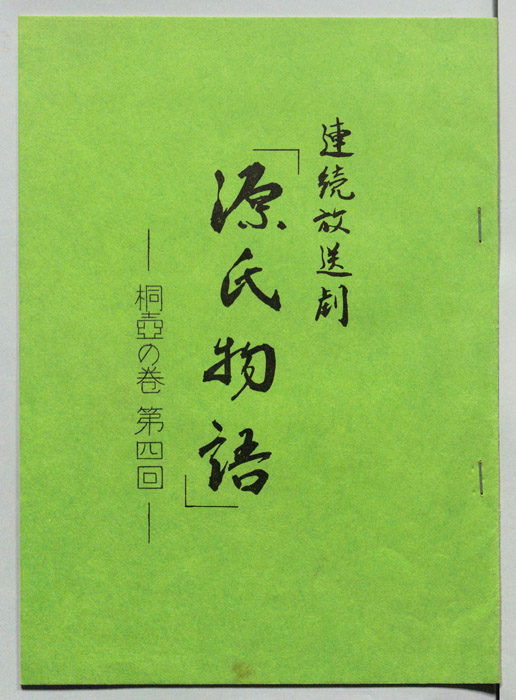 連続放送劇
「源氏物語」
―桐壺の巻 第四回―